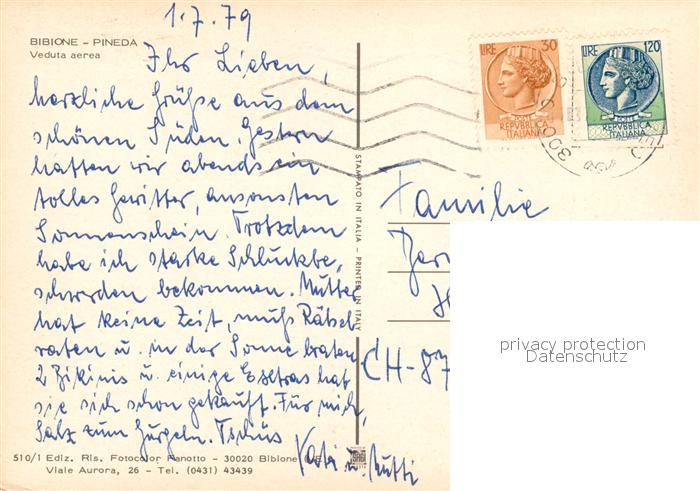 1.7.79
BIBIONE - PINEDA
Veduta aerea
Ihr Lieben,
herzliche Grüße aus dem
schönen Süden. Gestern
hatten wir abends ein
tolles Gewitter, ansonsten
Sonnenschein. Trotzdem
habe ich starke Schluckbe,
schwerden bekommen. Mutter
hat keine Zeit, muß Rätsel
raten u. in der Sonne braten
2 Bikinis u. einige Extras hat
sie sich schon gekauft. Für mich,
Salz zum Gurgeln. Tschüs
u. Mutti
510/1 Ediz. Ris. Fotocolor Fanotto - 30020 Bibione
Viale Aurora, 26 - Tel. (0431) 43439
STAMPATO IN ITALIA - PRINTED IN ITALY
LIRE 30
POSTE
REPVBBLICA
ITALIANA
LIRE 120
POSTE
REPVBBLICA
ITALIANA
Familie
CH-87
privacy protection
Datenschutz